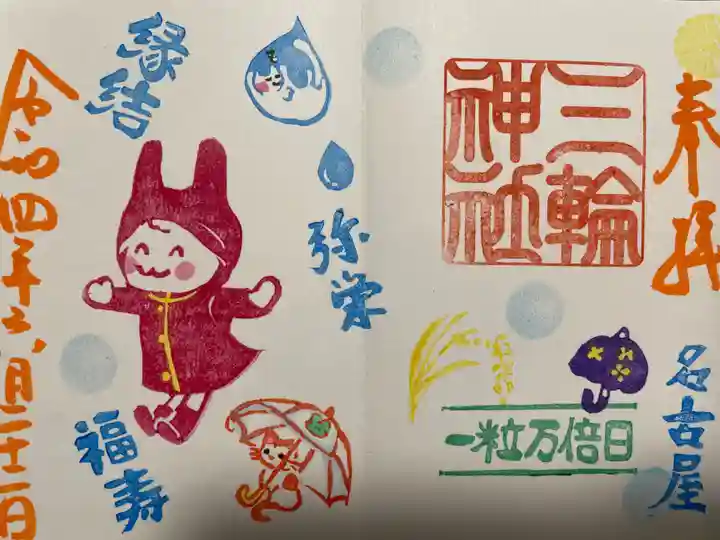 奉拝
三輪
神社
名古屋
一粒万倍日
弥栄
縁結
福寿
令和四年六月二十二日